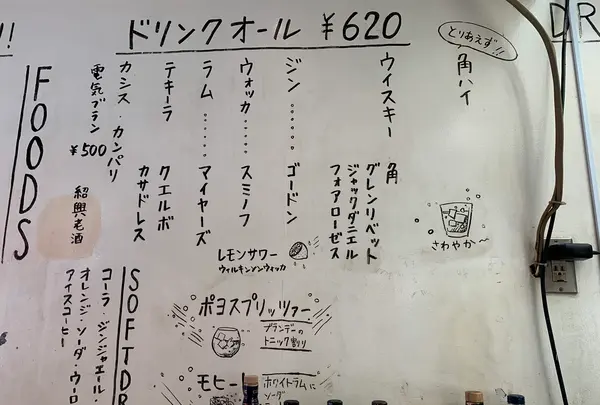 ドリンクオール ¥620
DR
とりあえず!!
角ハイ
さわやか〜
ウイスキー 角
グレンリベット
ジャックダニエル
フォアローゼス
ジン……ゴードン
ウォッカ……スミノフ
ラム……マイヤーズ
テキーラ クエルボ
カサドレス
カシス・カンパリ
電気ブラン ¥500
紹興老酒
レモンサワー
ウィルキンソンウォッカ
ポヨスプリッツァー
ブランデーの
トニック割り
モヒー
ホワイトラムに
ソーダ
FOODS
!!
SOFTDR
コーラ・ジンジャエール・
オレンジ・ソーダ・ウーロ
アイスコーヒー